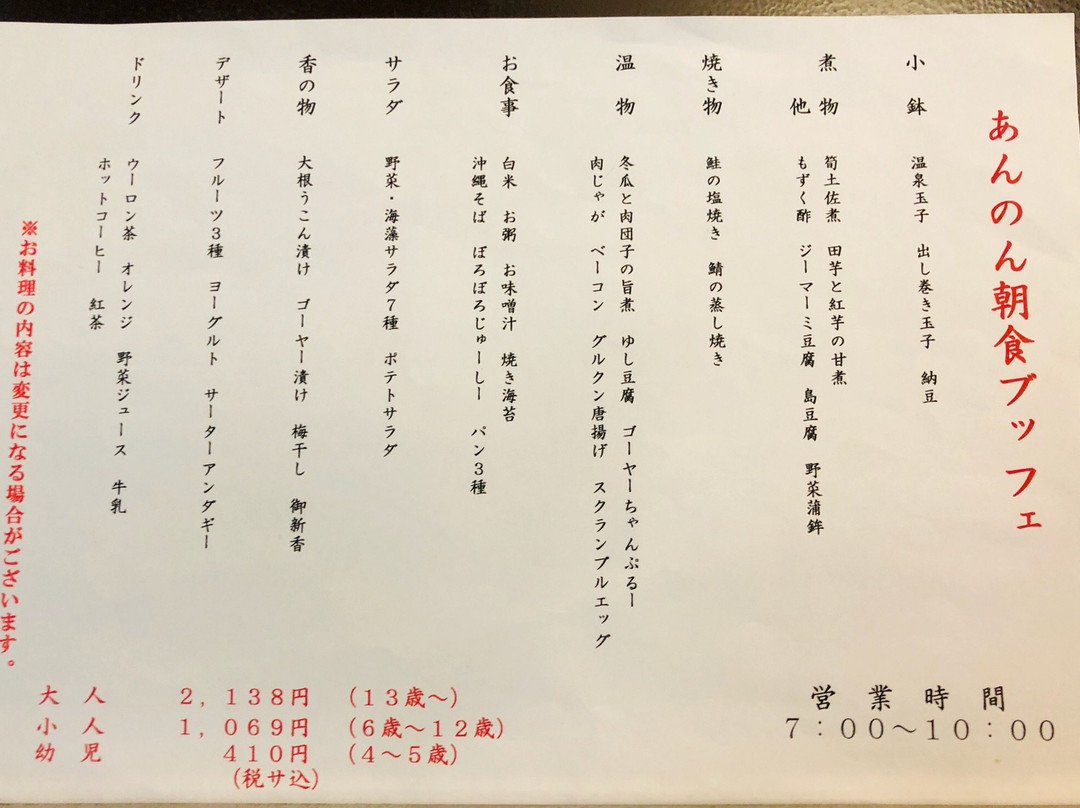 あんのん朝食ブッフェ
小鉢　温泉玉子　出し巻き玉子　納豆
煮物　筍土佐煮　田芋と紅芋の甘煮
他　もずく酢　ジーマーミ豆腐　島豆腐　野菜蒲鉾
焼き物　鮭の塩焼き　鯖の蒸し焼き
温物　冬瓜と肉団子の旨煮　ゆし豆腐　ゴーヤーちゃんぷるー
肉じゃが　ベーコン　グルクン唐揚げ　スクランブルエッグ
お食事　白米　お粥　お味噌汁　焼き海苔
沖縄そば　ぼろぼろじゅーしー　パン３種
サラダ　野菜・海藻サラダ７種　ポテトサラダ
香の物　大根うこん漬け　ゴーヤー漬け　梅干し　御新香
デザート　フルーツ３種　ヨーグルト　サーターアンダギー
ドリンク　ウーロン茶　オレンジ　野菜ジュース　牛乳
ホットコーヒー　紅茶
※お料理の内容は変更になる場合がございます。
営業時間
７：００〜１０：００
大人　２，１３８円　（１３歳〜）
小人　１，０６９円　（６歳〜１２歳）
幼児　４１０円　（４〜５歳）
（税サ込）